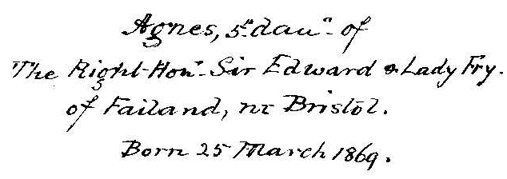 Agnes, 5th dau.r of
The Right Hon.e Sir Edward & Lady Fry.
of Failand, nr Bristol.
Born 25 March 1869.